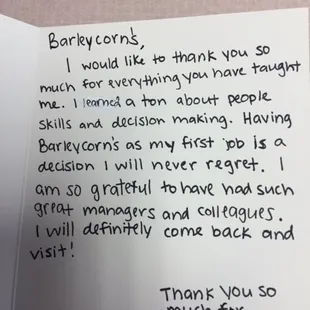 Barleycorn's,
I would like to thank you so
much for everything you have taught
me. I learned a ton about people
skills and decision making. Having
Barleycorn's as my first job is a
decision I will never regret. I
am so grateful to have had such
great managers and colleagues.
I will definitely come back and
visit!
Thank you so
much for